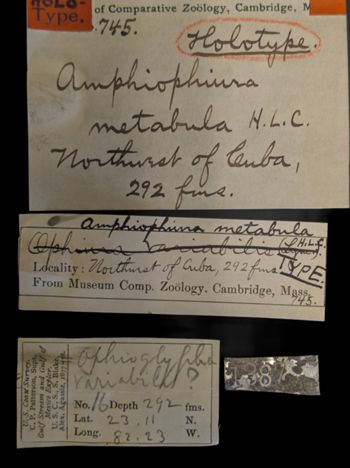 HOLO-
Type.
of Comparative Zoölogy, Cambridge, M
745.
Holotype.
Amphiophiura
metabula H.L.C.
Northwest of Cuba,
292 fms.
Amphiophiura metabula
H.L.C.
Ophiura variabilis (Lym.)
TYPE.
Locality: Northwest of Cuba, 292 fms
From Museum Comp. Zoölogy, Cambridge, Mass.
745.
U. S. Coast Survey,
C. P. Patterson, Supt.
Gulf Stream and Gulf of
Mexico Explor.
U. S. C. S. S. Blake,
Alex. Agassiz, 1877-78.
Ophioglypha
variabilis?
No. 16 Depth 292 fms.
Lat. 23.11 N.
Long. 82.23 W.